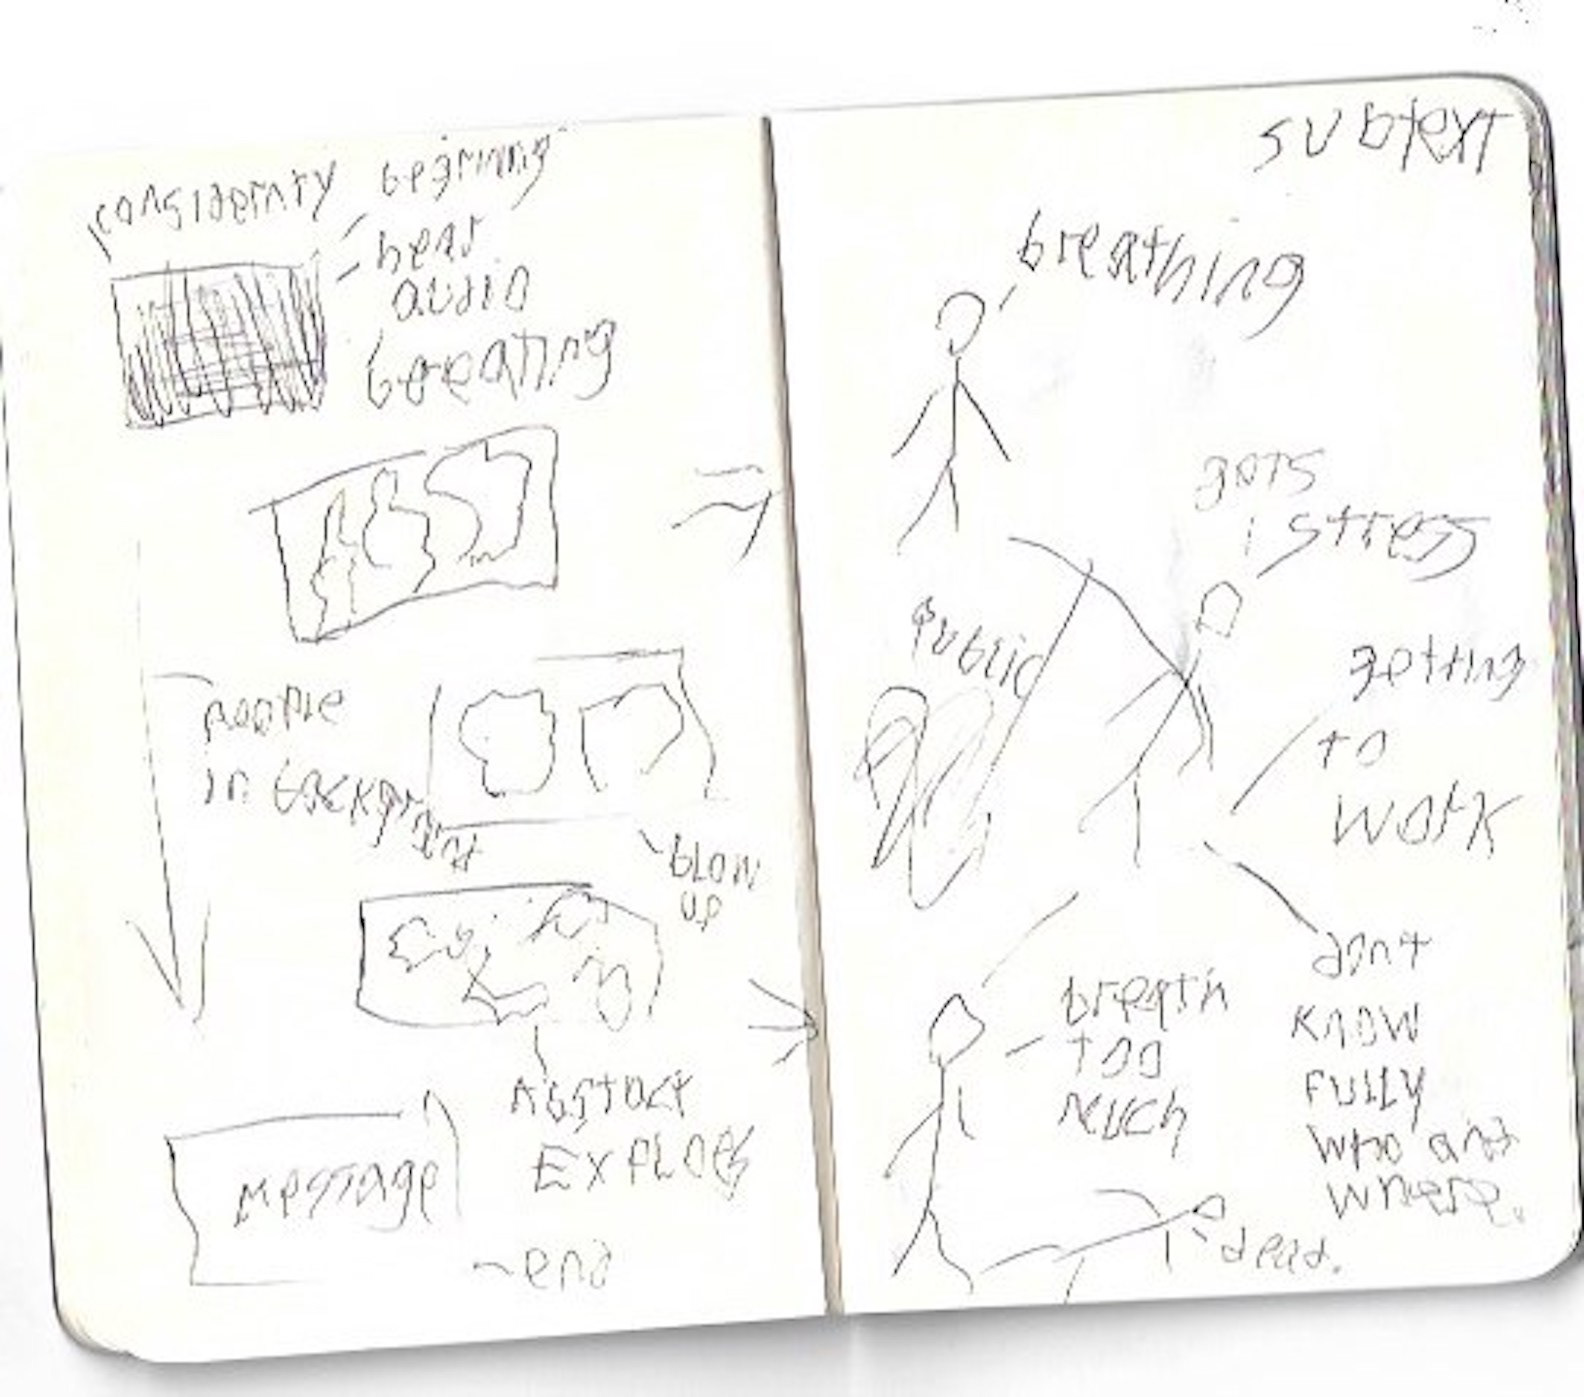 beginning
hear
audio
breating
people
in background
blow
up
Abstract
Exploes
message
end
subtext
breathing
gets
stress
public
getting
to
work
breath
too
much
dont
know
fully
who and
where.
dead.